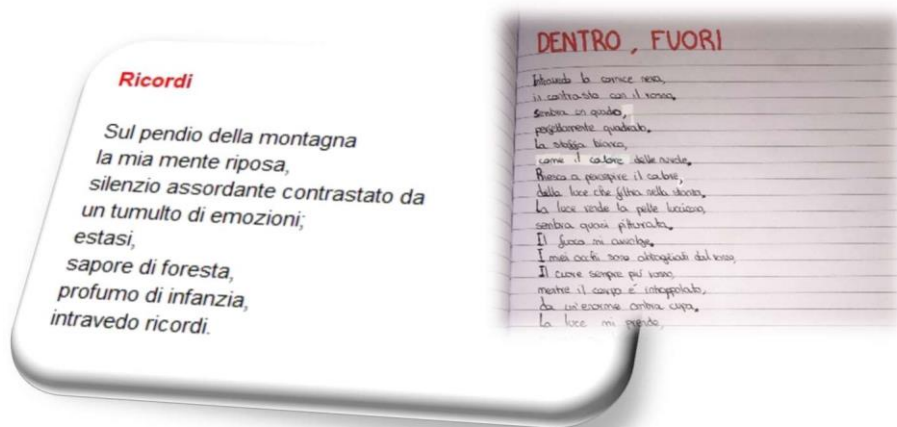 Ricordi
Sul pendio della montagna
la mia mente riposa,
silenzio assordante contrastato da
un tumulto di emozioni;
estasi,
sapore di foresta,
profumo di infanzia,
intravedo ricordi.
DENTRO, FUORI
la cornice nera,
in contrasto con il rosso,
sembra un quadro,
perfettamente quadrato.
La stoffa bianca,
come il calore delle nuvole.
Riesco a percepire il calore,
della luce che filtra nella stanza.
La luce rende la pelle
sembra quasi pitturata.
Il fuoco mi avvolge.
I miei occhi sono dal rosso,
Il cuore sempre più rosso,
mentre il corpo è intrappolato,
da un'enorme ombra cupa.
La luce mi prende,